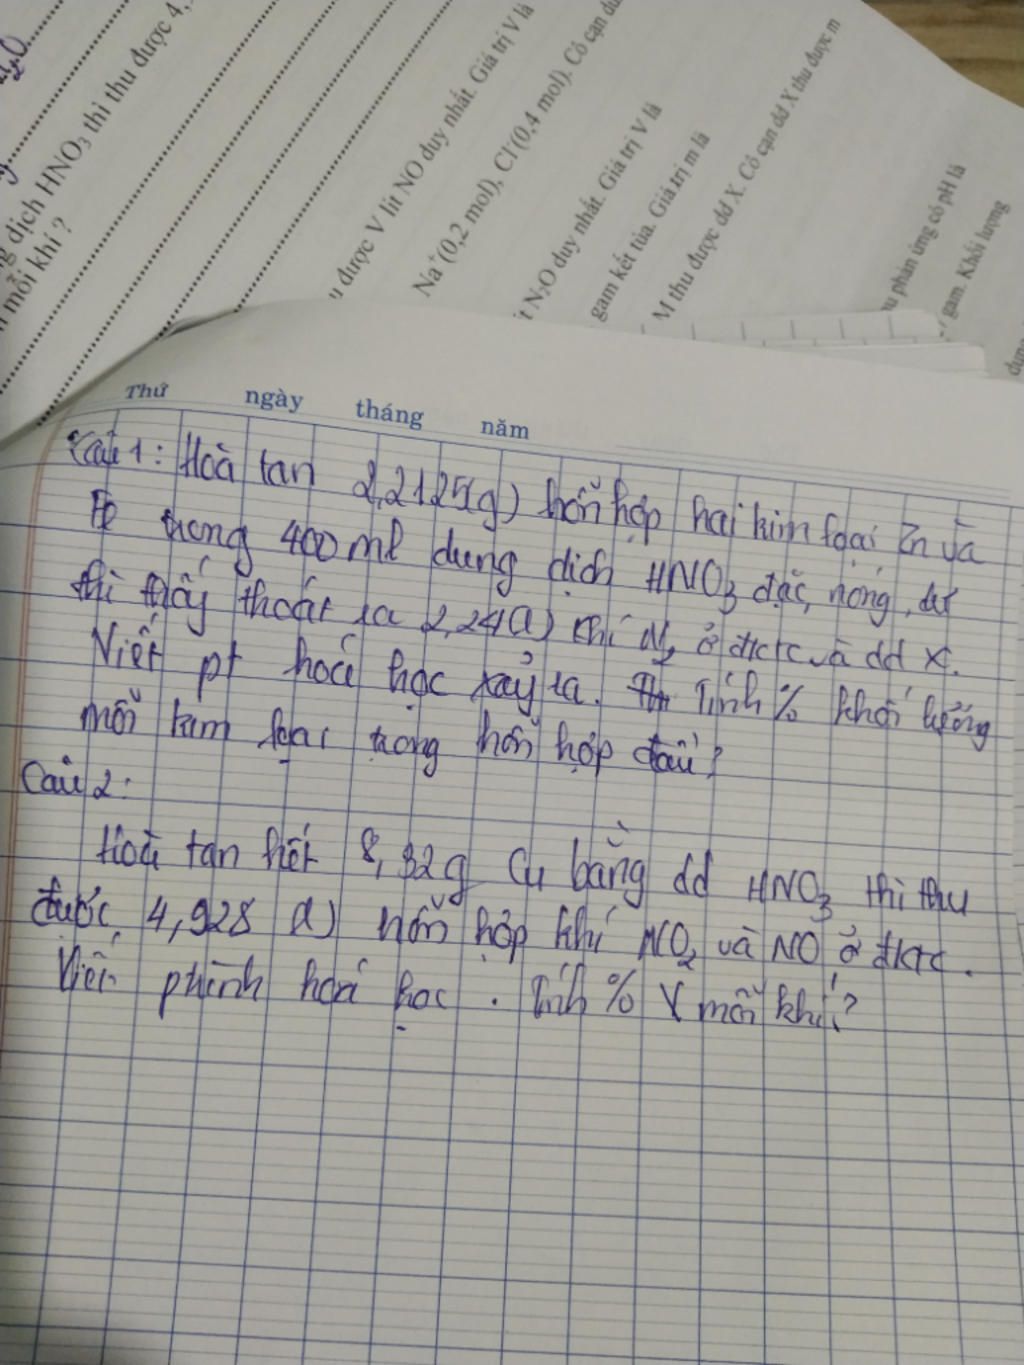 dịch HNO₃ thì thu được 4,
mỗi khí ?
được V lít NO duy nhất. Giá trị V là
Na⁺(0,2 mol), Cl⁻(0,4 mol). Cô cạn
N₂O duy nhất. Giá trị V là
gam kết tủa. Giá trị m là
M thu được dd X. Cô cạn dd X thu được m
phản ứng có pH là
gam. Khối lượng
Thứ ngày tháng năm
Câu 1: Hoà tan 2,2125(g) hỗn hợp hai kim loại Zn và
Fe trong 400 ml dung dịch HNO₃ đặc, nóng, dư
thì thấy thoát ra 2,24(l) khí N₂ ở đktc và dd X.
Viết pt hoá học xảy ra. Tính % khối lượng
mỗi kim loại trong hỗn hợp đầu?
Câu 2:
Hoà tan hết 8,32g Cu bằng dd HNO₃ thì thu
được 4,928 (l) hỗn hợp khí NO₂ và NO ở đktc.
Viết phình hoá học. Tính % V mỗi khí?